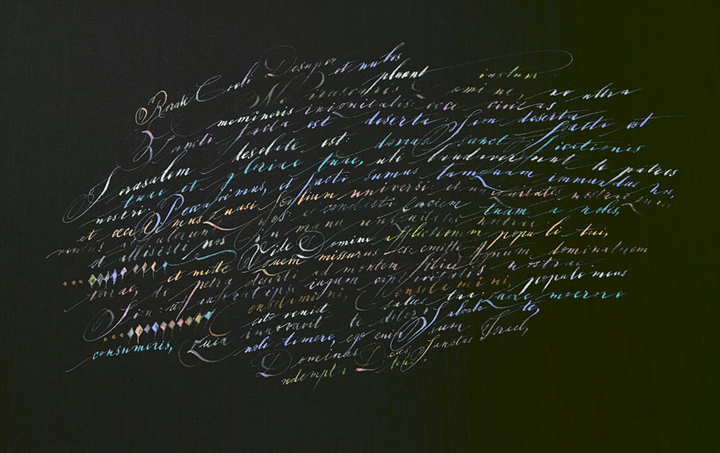 Rorate Coeli Desuper et nubes
pluant iustum
Ne irascaris Domine, ne ultra
memineris iniquitatis: ecce civitas
Sancti facta est deserta: Sion deserta facta est
Jerusalem desolata est: domus sanctificationis
tuae et gloriae tuae, ubi laudaverunt te patres
nostri. Peccavimus, et facti sumus tamquam immundus nos,
et cecidimus quasi folium universi: et iniquitates nostrae quasi
ventus abstulerunt nos: abscondisti faciem tuam a nobis,
et allisisti nos in manu iniquitatis nostrae
Vide Domine afflictionem populi tui,
et mitte quem missurus es: emitte Agnum dominatorem
terrae, de petra deserti ad montem filiae
Sion: ut auferat ipse iugum captivitatis nostrae
Consolamini, Consolamini, popule meus
cito veniet salus tua: quare moerore
consumeris, quia innovavit te dolor? Salvabo te,
noli timere, ego enim sum
Dominus Deus Sanctus Israel,
redemptor tuus.